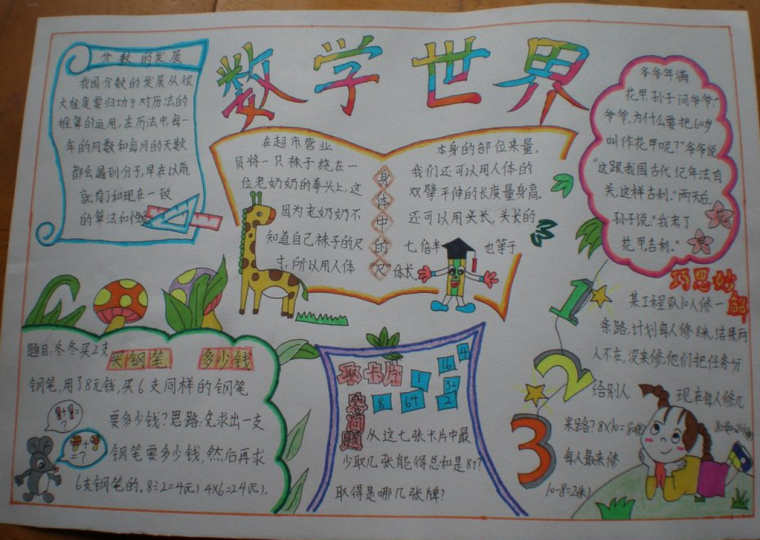 数学世界
分数的发展
我国分数的发展从很
大程度要归功于对历法的
推算的运用,在历法中每一
年的月数和每月的天数
都会遇到分子,早在以前
就有了和现在一致
的算法如
在超市营业
员将一只袜子绕在一
位老奶奶的拳头上,这
因为老奶奶不
知道自己袜子的尺
寸,所以用人体
身体中的"尺"
本身的部位来量,
我们还可以用人体的
双臂平伸的长度量身高,
还可以用头长,头长的
七倍半 也等于
体长
爷爷年满
花甲,孙子问爷爷:"
爷爷,为什么要把60岁
叫作花甲呢?"爷爷说
"这跟我国古代纪年法有
关,这样吉利。"两天后,
孙子说:"我考了
花甲吉利。"
题目:冬冬买2支
买钢笔 多少钱
钢笔,用了8元钱,买6支同样的钢笔
要多少钱?思路:先求出一支
钢笔要多少钱,然后再求
6支钢笔的。8÷2=4(元) 4×6=24(元)
=?
=?
取卡片
1 16 4
8 64 32 2
从这七张卡片中最
少取几张能得总和是87?
取得是哪几张牌?
巧思妙解
某工程队10人修一
条路,计划每人修8米,结果两
人不在,没来修,他们把任务分
给别人 现在每人修几
米路?
每人最来修
10-8=2(米)
1
2
3